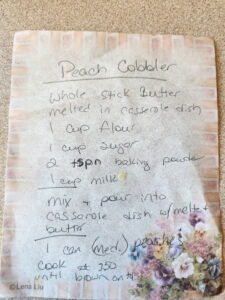 Peach Cobbler
Whole Stick Butter
melted in casserole dish
1 cup flour
1 cup sugar
2 tspn baking powder
1 cup milk
mix + pour into
casserole dish w/ melted
butter
1 can (med) peaches
cook at 350
until brown on
©Lena Liu